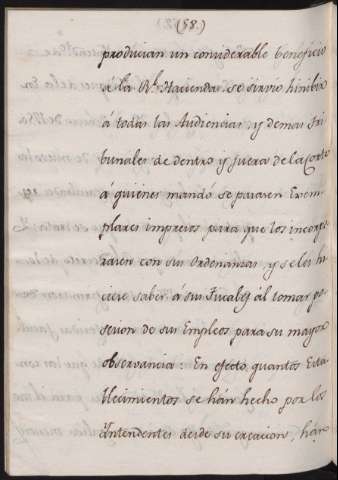 (58.)
producian un considerable beneficio
a la Rl. Hacienda, se sirvio hinibir
á todas las Audiencias, y demas Tri
bunales de dentro y fuera de la Corte
á quiénes mandó se pasaren Exem-
plares impresos para que los incorpo
rasen con sus Ordenanzas, y se les hi
ciese saber á sus Fiscales al tomar po
sesion de sus Empleos para su mayor
observancia: En efecto, quantos Esta
blecimientos se hán hecho por los
Intendentes desde su creacion, hán